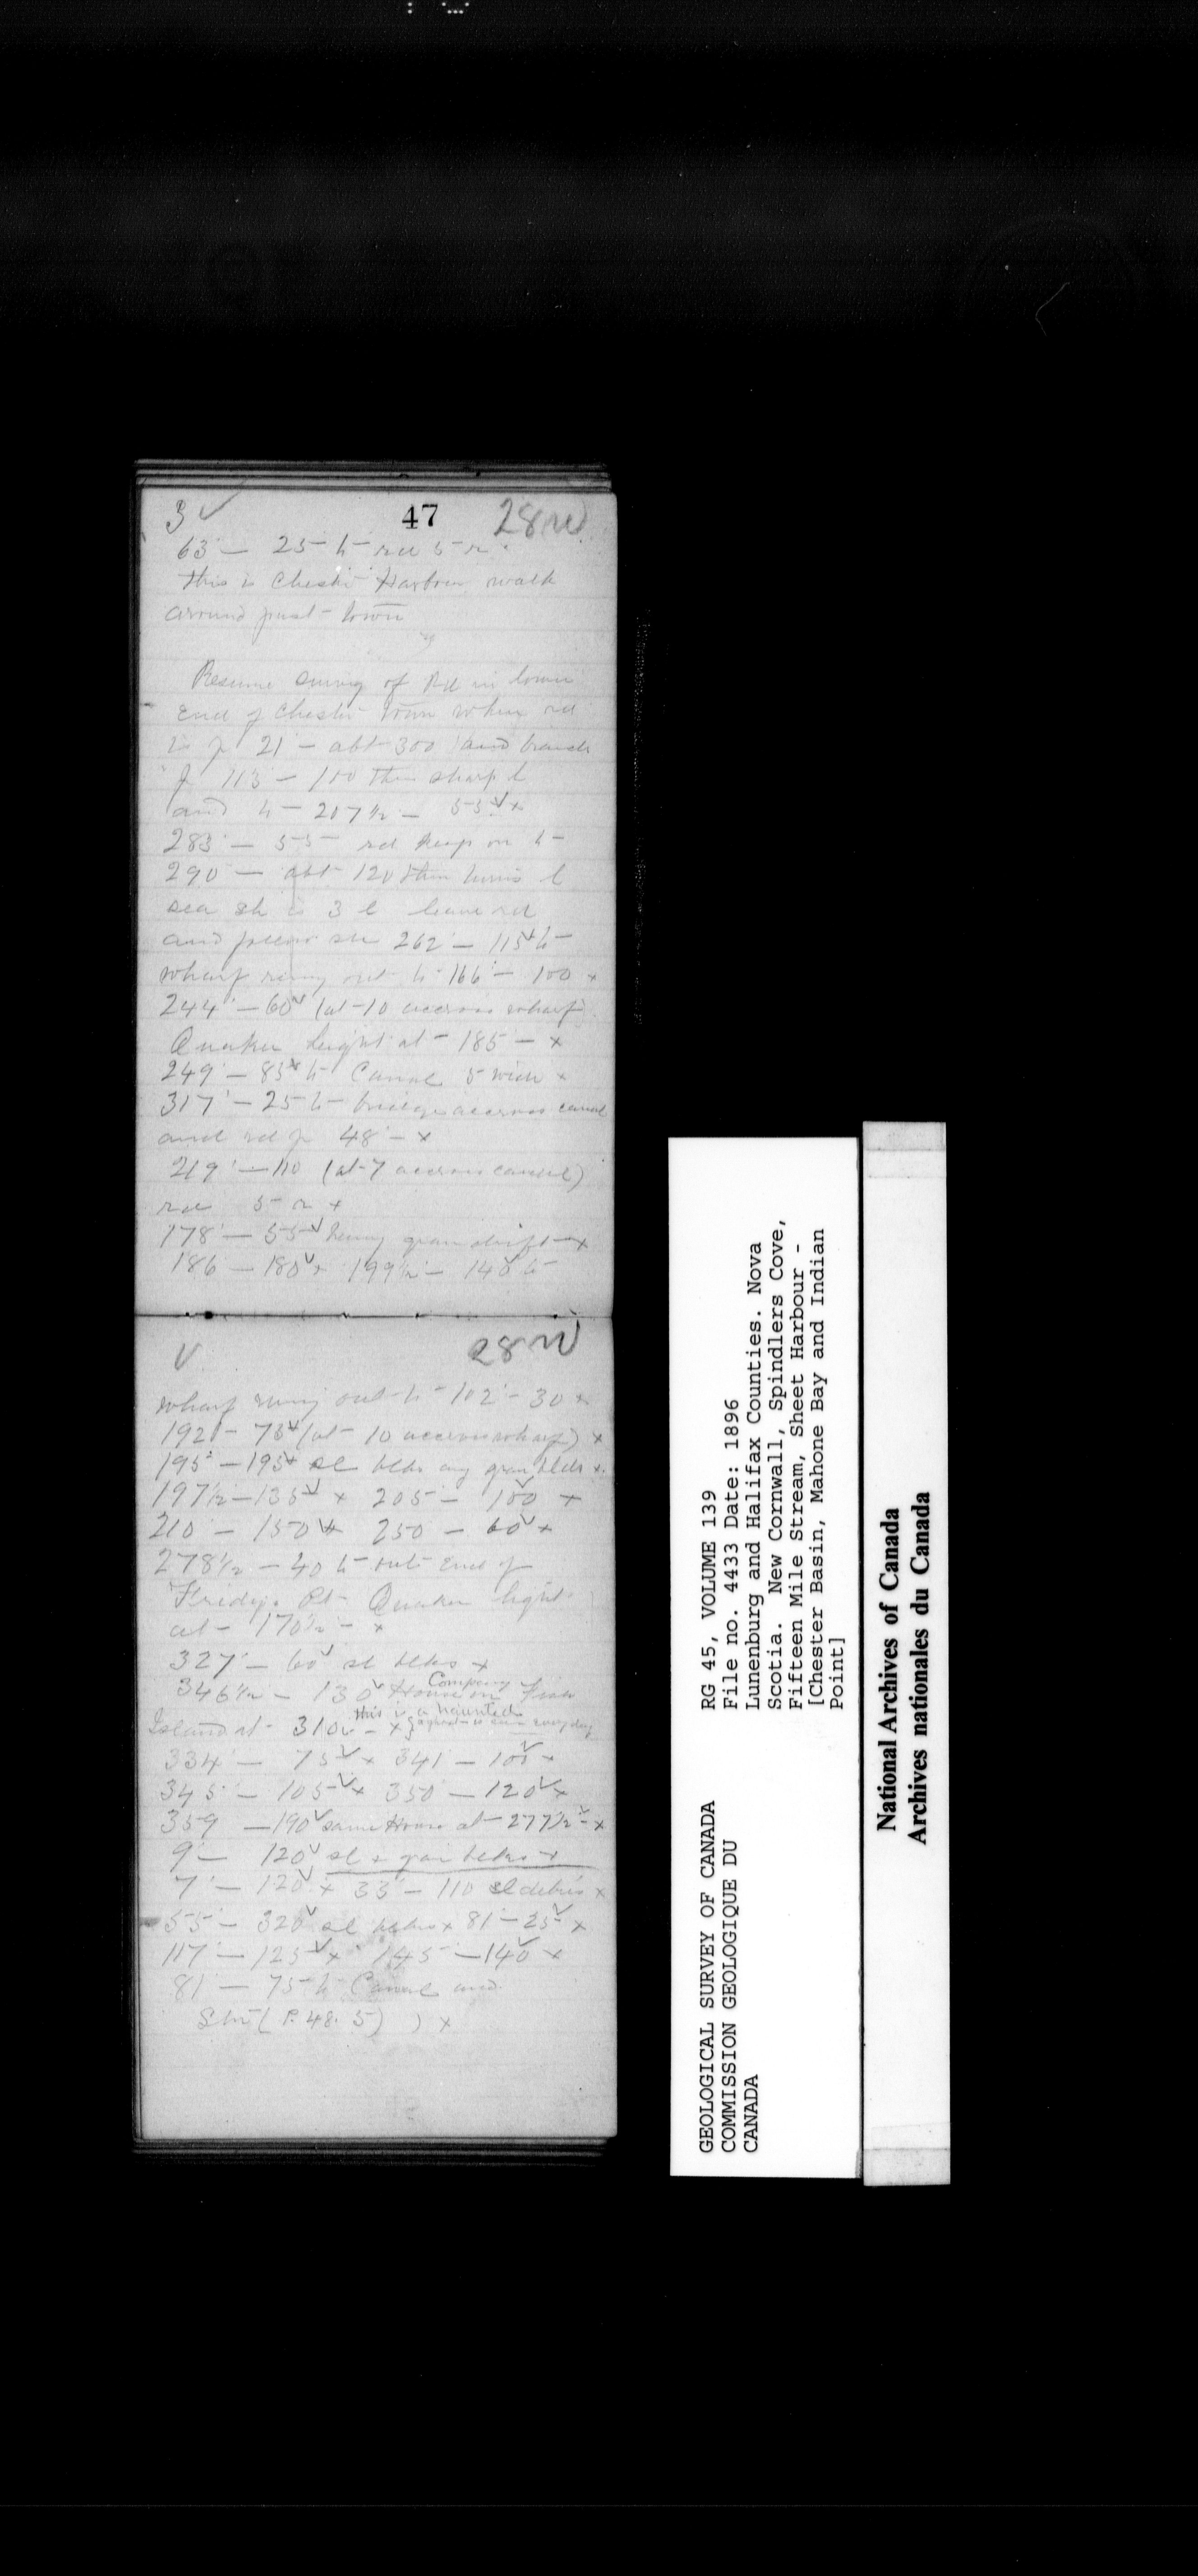 3 ✓ 47 28 N
63° — 25 h — rd 5 r.
this is Chester Harbour walk
around past town
Resume survey of Rd in town
End of Chester town when rd
is 21° — abt 300 and branch
113° — 100 then sharp l
and h — 207½ — 55 ✓ x
283° — 55 rd keeps on h —
290 — abt 120 then turns l
sea sh is 3 l leave rd
and follow sh 262° — 115 h —
wharf runng out h — 166° — 100 x
244° — 60 ✓ (at 10 accross wharf)
Quaker light at — 185 — x
249° — 85 h Canal 5 wide x
317° — 25 h — bridge accross canal
and rd 48° — x
219° — 110 (at 7 accross canal)
rd 5 r x
178° — 55 ✓ heavy gran drift — x
186 — 180 ✓ x 199½° — 140 ✓ h —
✓ 28 N
wharf runng out h — 102° — 30 x
192 — 75 ✓ (at — 10 accross wharf) x
195° — 195 x sl blds ang gran blds x.
197½ — 135 ✓ x 205 — 100 ✓ x
210 — 150 ✓ x 250 — 60 ✓ x
278½ — 40 h — out End of
Pt — Quaker light
at — 170½ — x
327° — 60 ✓ sl blds x
346½ — 130 ✓ House on Company
Island at — 310 — x this is a haunted
334° — 75 ✓ x 341 — 100 ✓ x
345° — 105 ✓ x 350 — 120 ✓ x
359 — 190 ✓ same House at — 277½ — x
9° — 120 ✓ sl & gran blds x
7° — 120 ✓ x 33° — 110 sl debris x
55° — 320 ✓ sl blds x 81° — 25 ✓ x
117° — 125 ✓ x 145° — 140 ✓ x
81° — 75 h Canal and
(P. 48. 5) ) x
GEOLOGICAL SURVEY OF CANADA
COMMISSION GEOLOGIQUE DU
CANADA
RG 45, VOLUME 139
File no. 4433 Date: 1896
Lunenburg and Halifax Counties. Nova
Scotia. New Cornwall, Spindlers Cove,
Fifteen Mile Stream, Sheet Harbour -
[Chester Basin, Mahone Bay and Indian
Point]
National Archives of Canada
Archives nationales du Canada